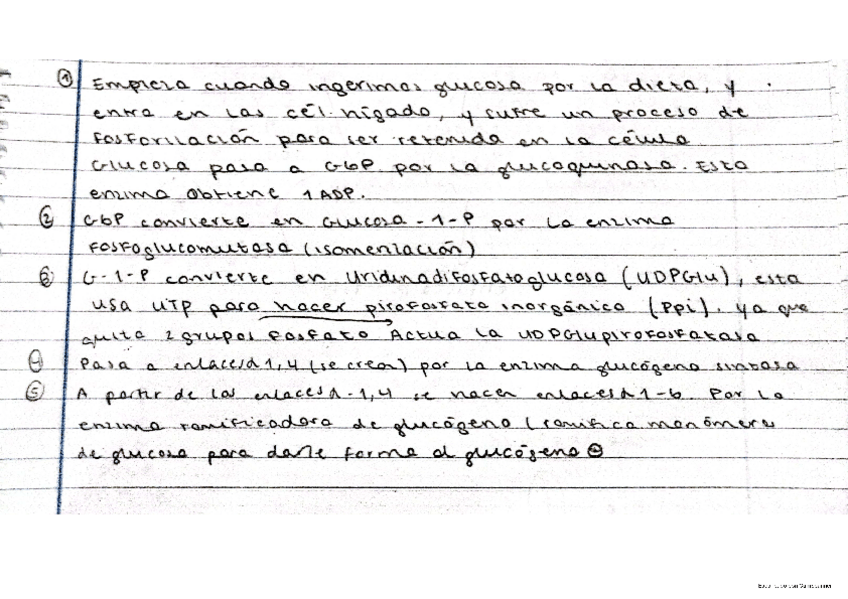 ① Empieza cuando ingerimos glucosa por la dieta, y
entra en las cél. hígado, y sufre un proceso de
fosforilación para ser retenida en la célula
Glucosa pasa a G6P por la glucoquinasa. Esta
enzima obtiene 1 ADP.
② G6P convierte en Glucosa-1-P por la enzima
fosfoglucomutasa (isomerización)
③ G-1-P convierte en Uridinadifosfatoglucosa (UDPGlu), esta
usa UTP para hacer pirofosfato inorgánico (PPi). Ya que
quita 2 grupos fosfato Actua la UDPGlupirofosfatasa
④ Pasa a enlaces α 1,4 (se crean) por la enzima glucógeno sintasa
⑤ A partir de los enlaces α-1,4 se hacen enlaces α 1-6. Por la
enzima ramificadora de glucógeno (ramifica monómeros
de glucosa para darle forma al glucógeno